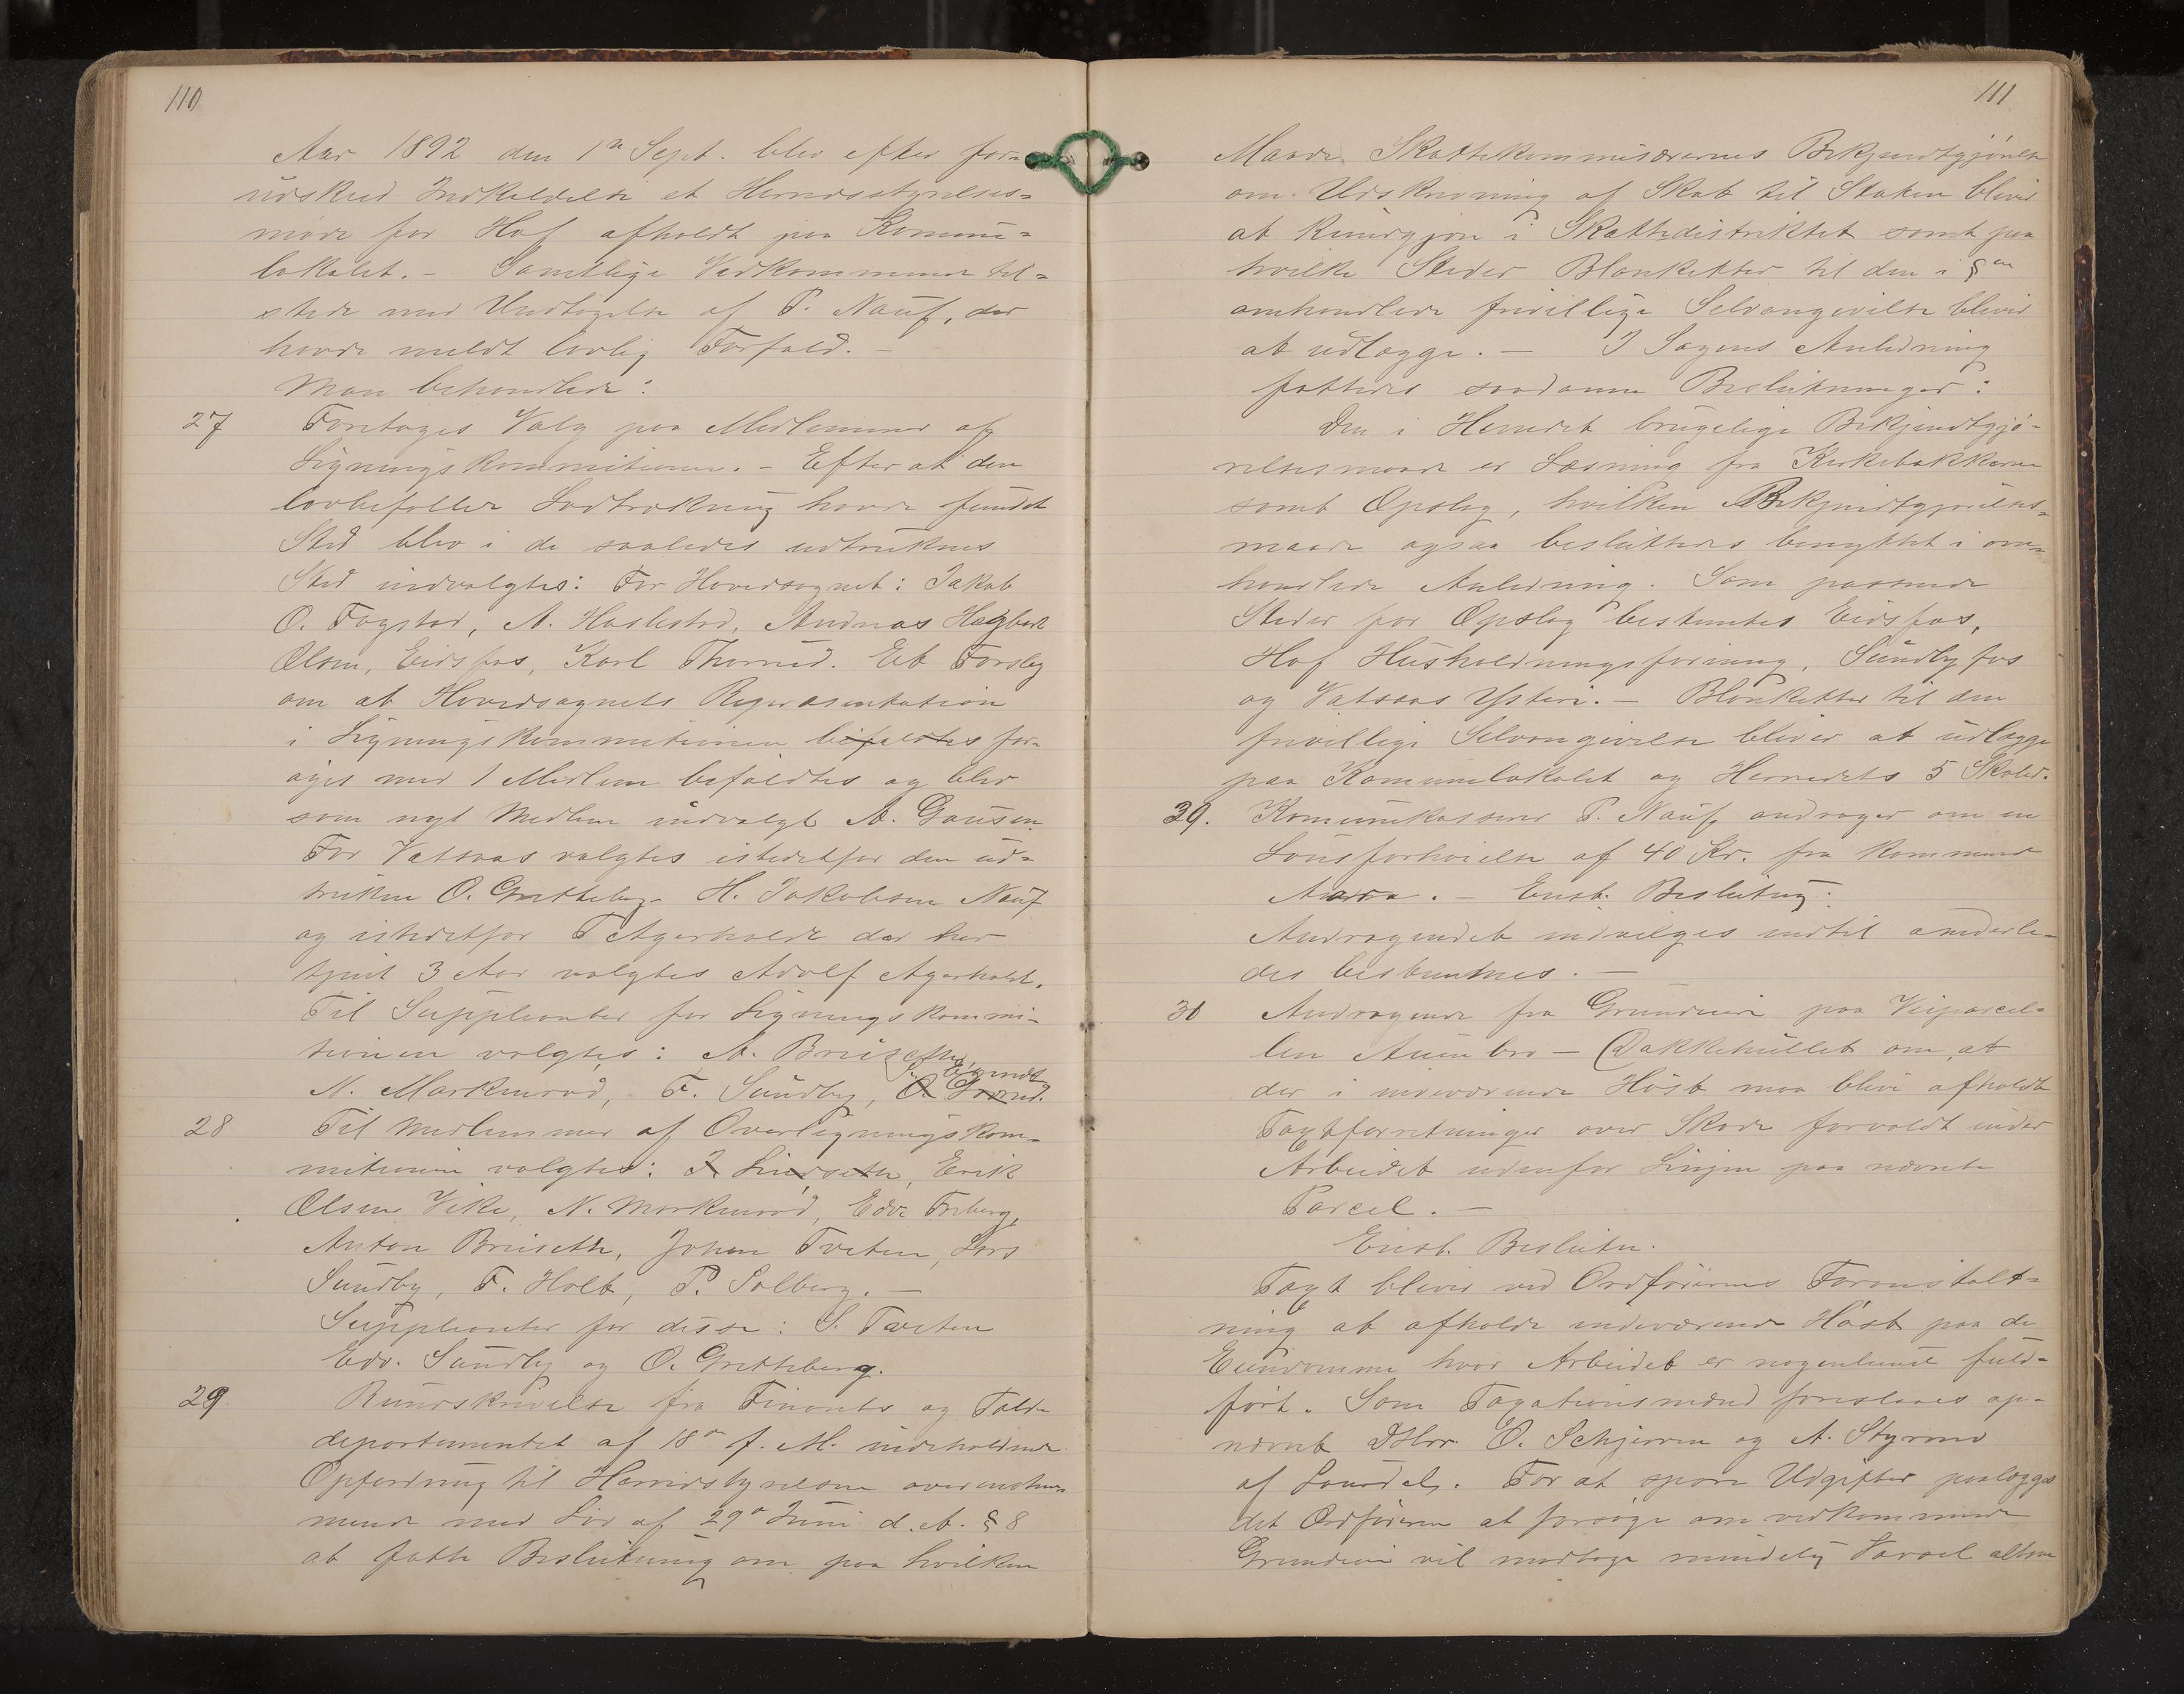 110
Aar 1892 den 1ⁿ Sept. blev efter for-
udskeed Indkaldelse et Herredsstyrelses-
møde for Hof afholdt paa Komune-
lokalet. - Samtlige Vedkommende til-
stede med Undtagelse af P. Nauf, der
havde meldt lovlig Forfald. -
Man behandlede:
27 Foretoges Valg paa Medlemmer af
Ligningskommitionen. - Efter at den
lovbefallede Lodtrækning havde fundet
Sted blev i de saaledes udtrukne
Sted indvalgtes: For Hovedsognet: Jakob
O. Fogstad, A. Haslestad, Andreas Hagbart
Olsen, Eidsfos, Karl Thorrud. Et Forslag
om at Hovedsognets Repræsentation
i Ligningskommitionen bifaldtes for-
øges med 1 Medlem bifaldtes og blev
som nyt Medlem indvalgt A. Gausen.
For Vassaas valgtes istedetfor den ud-
trukne O. Gretteberg H. Jakobsen Nauf
og istedetfor T Agerholdt der har
tjent 3 Aar valgtes Adolf Agerholdt.
Til Suppleanter for Ligningskommi-
tionen valgtes: A. Bruseth,
N. Markerød, F. Sundby, O. Grørud.
28 Til Medlemmer af Overligningskom-
mitionen valgtes: J. Lindseth, Erik
Olsen Vike, N. Markerød, Edv. Friberg,
Anton Bruseth, Johan Tveten, Lars
Sundby, F. Holt, P. Solberg. -
Suppleanter for disse: S. Tveten
Edv. Sundby og O. Gretteberg.
29. Rundskrivelse fra Finants og Told-
departementet af 18ᵈ f. M. indeholdende
Opfordring til Herredstyrelsen overenstem-
mende med Lov af 29ᵈ Juni d. A. § 8
at fatte Beslutning om paa hvilken
111
Maade Skattekommisærernes Bekjendtgjørelse
om Udskrivning af Skat til Staten bliver
at kundgjøre i Skattedistriktet samt paa
hvilke Steder Blanketter til den i §ᵉⁿ
omhandlede frivillige Selvangivelse bliver
at udlægge. - I Sagens Anledning
fattedes saadanne Beslutninger:
Den i Herredet brugelige Bekjendtgjø-
relsesmaade er Læsning fra Kirkebakkerne
samt Opslag, hvilken Bekjendtgjørelses-
maade ogsaa besluttedes benyttet i om-
handlede Anledning. Som passende
Steder for Opslag bestemtes Eidsfos,
Hof Husholdningsforening, Sundbyfos
og Vassaas Ysteri. - Blanketter til den
frivillige Selvangivelse bliver at udlægge
paa Komunelokalet og Herredets 5 Skoled.
39. Komunekasserer P. Nauf andrager om en
Lønsforhøielse af 40 Kr. fra kommende
Aar. - Enst. Beslutning:
Andragendet indvilges indtil anderle-
des bestemmes. -
30 Andragende fra Grundeiere paa Veiparcel-
len Auen bro - Bakkehullet om, at
der i indeværende Høst maa blive afholdt
Taxtforretninger over Skade forvoldt under
Arbeidet udenfor Linjen paa nævnte
Parcel. -
Enst. Beslutn.
Taxt bliver ved Ordførerens Foranstalt-
ning at afholde indeværende Høst paa de
Eiendomme hvor Arbeidet er nogenlunde fuld-
ført. Som Taxationsmænd foreslaaes op-
nævnt DHrr. O. Schjerven og A. Styrmo
af Sande. For at spare Udgifter paalægges
det Ordføreren at forsøge om vedkommende
Grundeiere vil modtage mundtlig Varsel